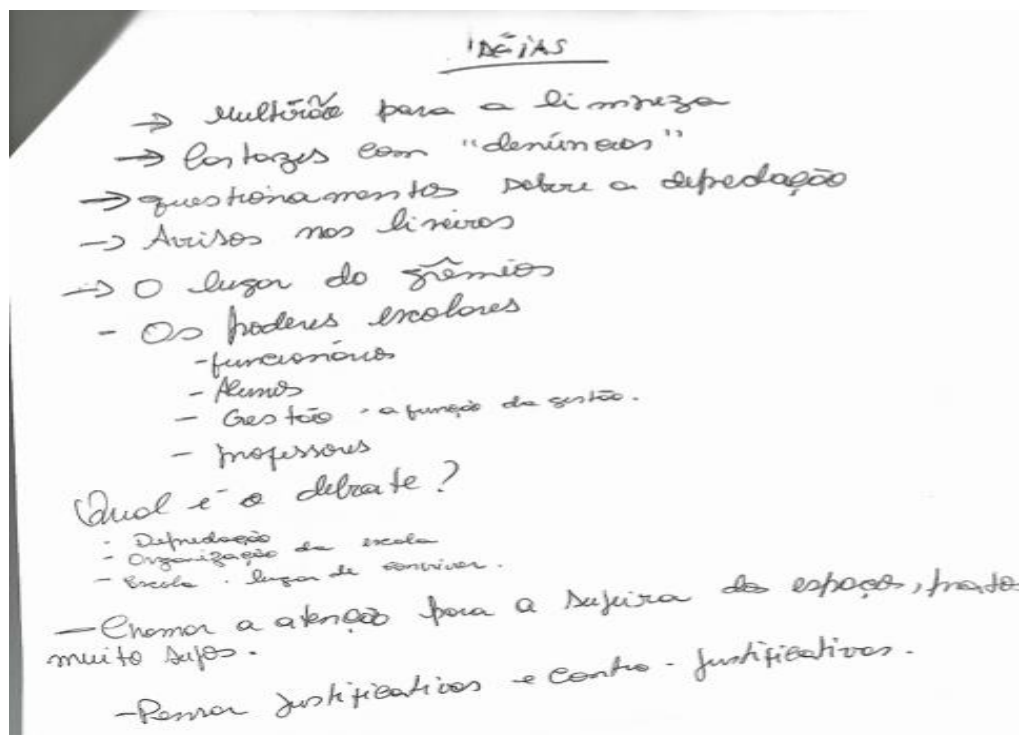 IDÉIAS
→ Multirão para a limpeza
→ Cartazes com "denúncias"
→ questionamentos sobre a depredação
→ Avisos nos lixeiros
→ O lugar do grêmios
- Os poderes escolares
- funcionários
- Alunos
- Gestão - a função da gestão.
- professores
Qual é o debate?
- Depredação
- Organização da escola
- Escola . lugar de conviver.
- Chamar a atenção para a sujeira dos espaços, pratos
muito sujos.
- Pensar justificativas e contra-justificativas.